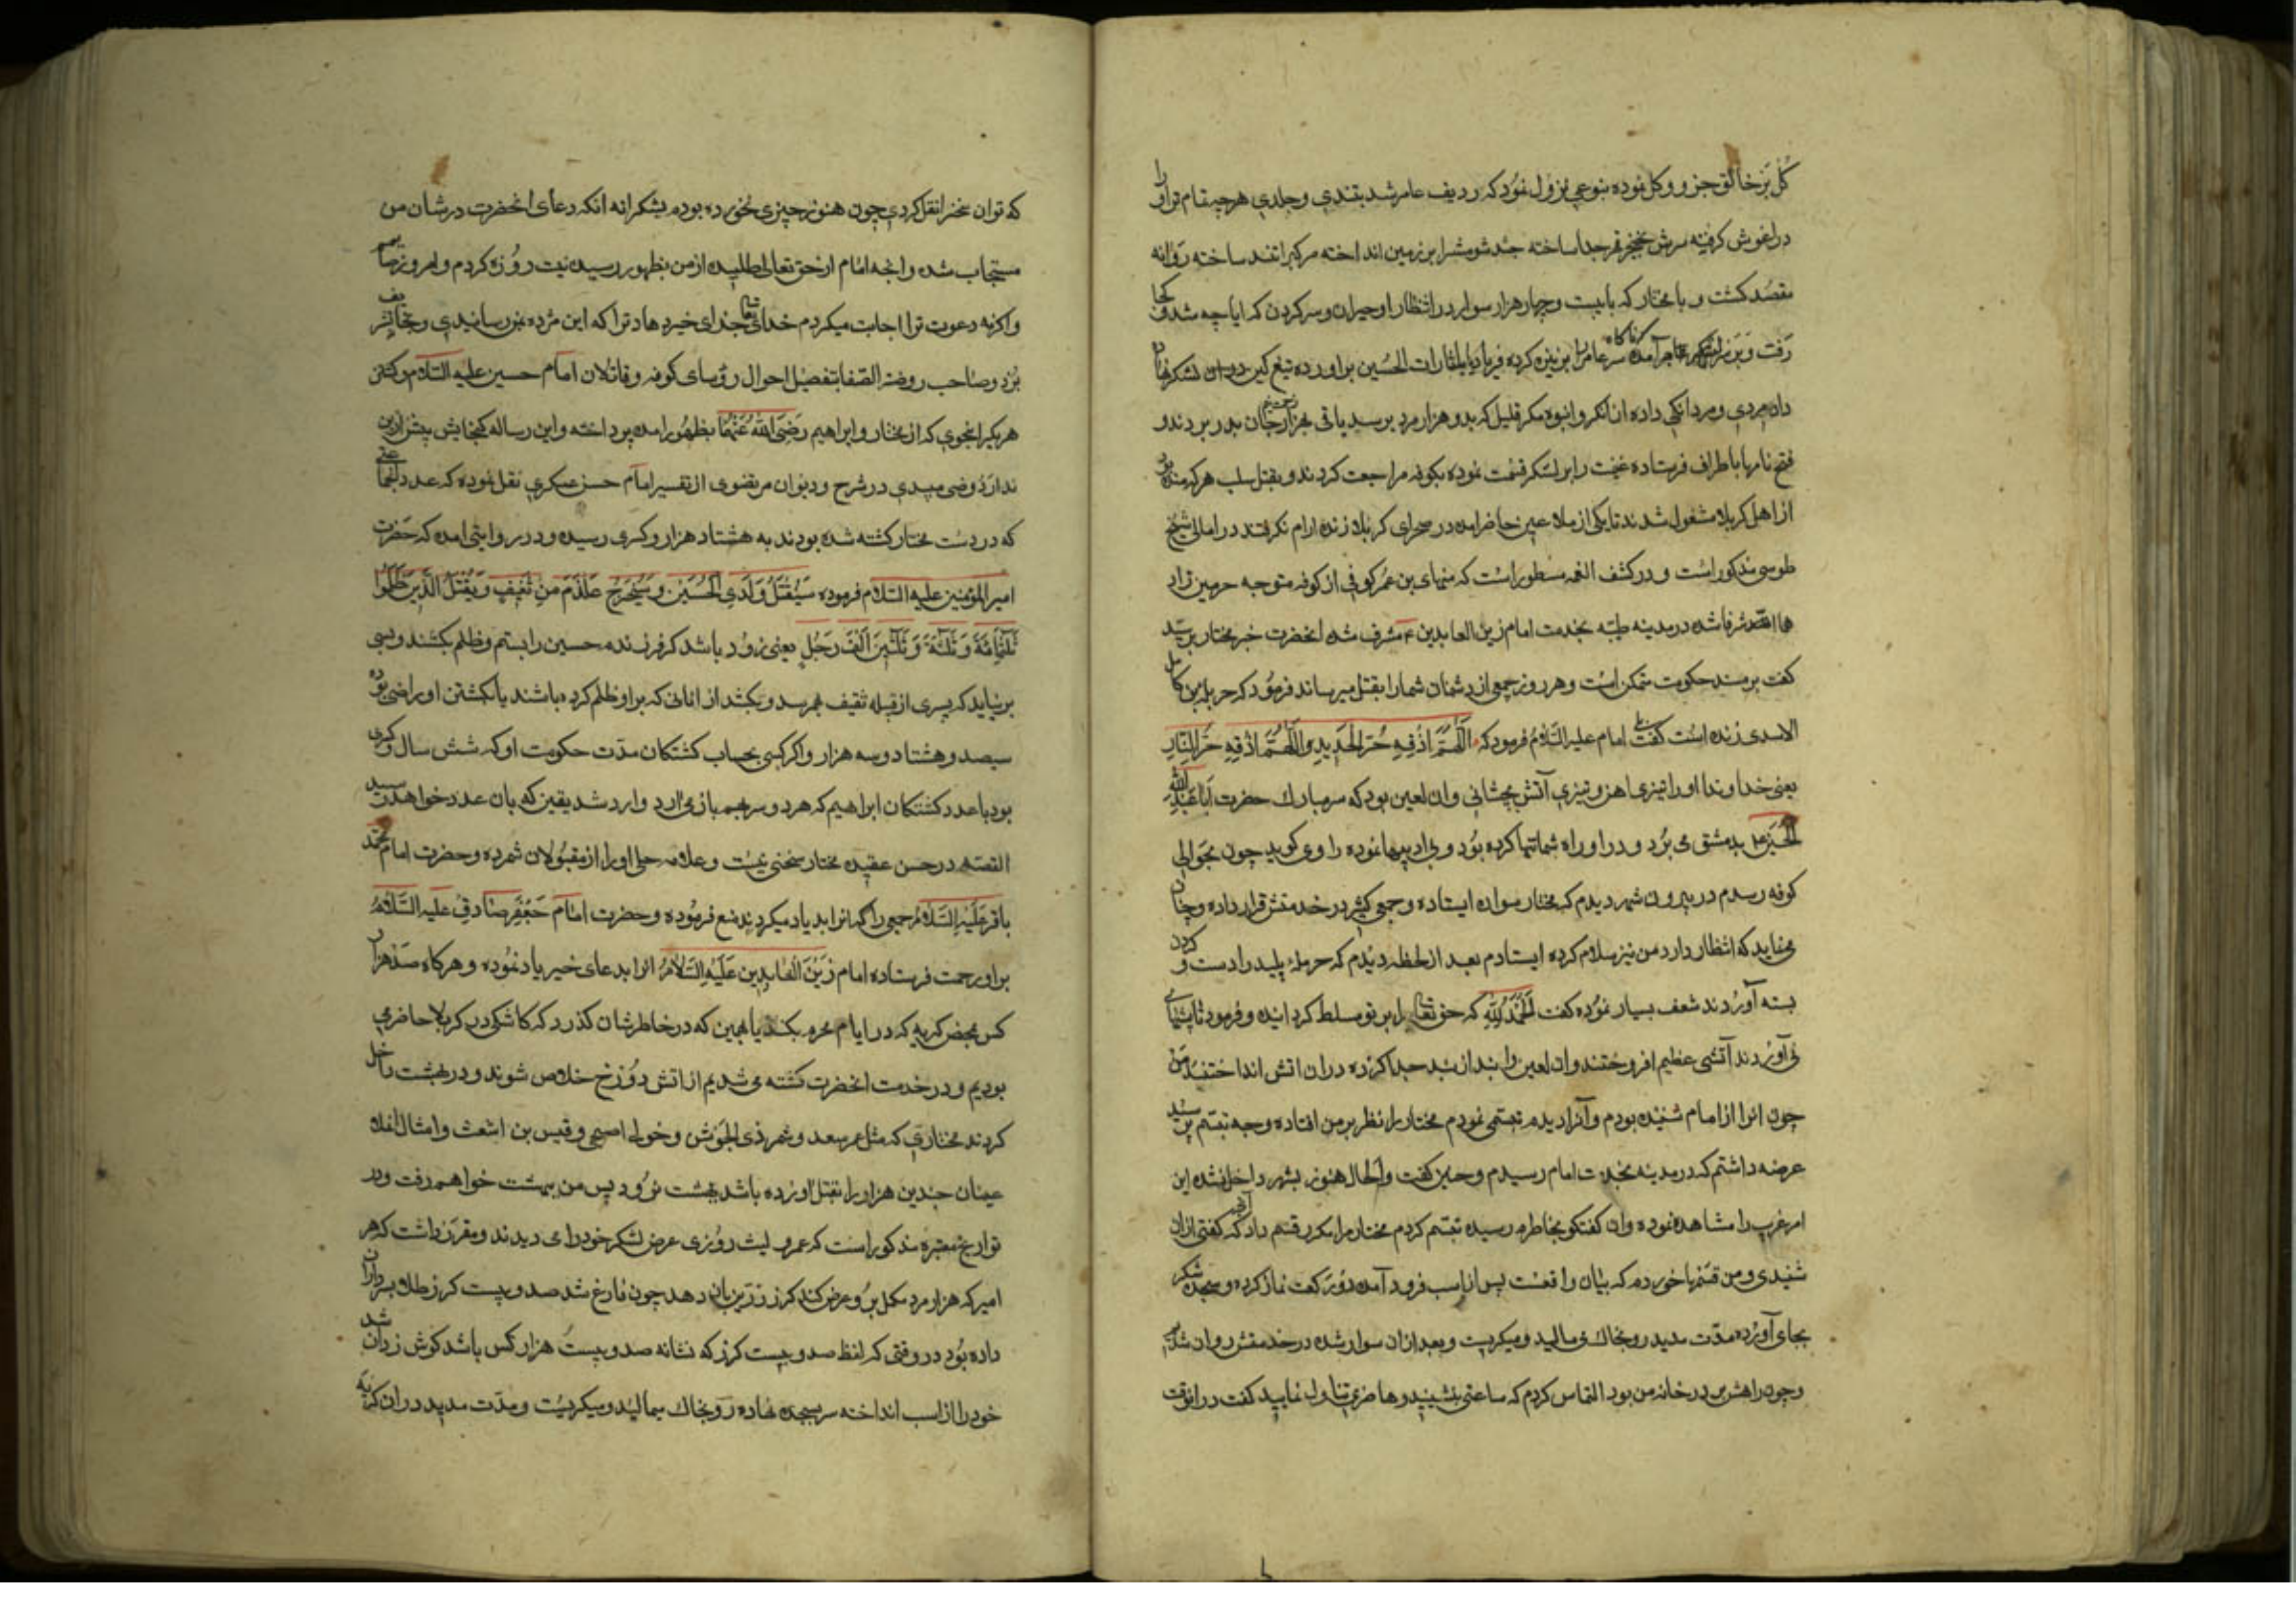 کل بر خالق جزو و کل نموده بنوعی نزول نمود که ردیف عامر شد بتندی و جلدی هرچه تمام تر او را
در اغوش کرفته سرش بخنجر قهر جدا ساخته جثه شومش را بر زمین انداخته مرکب را تند ساخته روانه
مقصد کشت و با مختار که با بیست و چهار هزار سوار در انتظار او حیران و سرکردان که ایا چه شد و کجا
رفت و بر نیزه کرده فریاد یا لثارات الحسین براورده تیغ کین در ان لشکر نهاده
داد مردی و مردانکی داده ان لشکر انبوه مکر قلیل که بدو هزار مرد برسید باقی بهزار زحمت جان بدر بردند و
فتح نامها باطراف فرستاده غنیمت را بر لشکر قسمت نموده بکوفه مراجعت کردند و بقتل سلب هر که مانده بود
از اهل کربلا مشغول شدند تا یکی از ملاعین حاضر امده در صحرای کربلا زنده ارام نکرفتند در امالی شیخ
طوسی مذکور است و در کشف الغمه مسطور است که منهای بن عمر کوفی از کوفه متوجه حرمین زاد
هما الله شرفا شده در مدینه طیبه بخدمت امام زین العابدین ع مشرف شده انحضرت خبر مختار پرسید
کفت بر مسند حکومت متمکن است و هر روز جمعی از دشمنان شما را بقتل میرساند فرمود که حرمله بن کاهل
الاسدی زنده است کفت بلی امام علیه السلام فرمود که اَللّهُمَّ اَذِقهِ حَرَّ الحَدِیدِ و اَللّهُمَّ اَذِقهِ حَرَّ النّارِ
یعنی خداوندا او را تیزی اهن و تیزی آتش بچشانی و ان لعین بود که سر مبارک حضرت ابا عبد الله
الحسین ع بدمشق می برد و در او راه شماتتها کرده بود و بی ادبیها نموده راوی کوید چون بحوالی
کوفه رسیدم در بیرون شهر دیدم که مختار سواره ایستاده و جمعی کثیر در خدمتش قرار داده و چنان
می نماید که انتظار دارد من نیز سلام کرده ایستادم بعد از لحظه دیدم که حرملهٔ پلید را دست و کردن
بسته آوردند شعف بسیار نموده کفت اَلحَمدُ لِلّه که حق تعالی مرا بر تو مسلط کردانیده و فرمود تا پشتهای
نی آوردند آتشی عظیم افروختند و ان لعین را بند از بند جدا کرده در ان اتش انداختند من
چون انرا از امام شنیده بودم و آنرا دیدم تبسمی نمودم مختار را نظر بر من افتاده وجه تبسم پرسید
عرضه داشتم که در مدینه بخدمت امام رسیدم و چنین کفت و الحال هنوز بشهر داخل نشده این
امر غریب را مشاهده نموده و ان کفتکو بخاطرم رسیده تبسم کردم مختار مرا مکرر قسم داد که آنچه کفتی از ان
شنیدی و من قسمها خوردم که بیان واقعست پس از اسب فرود آمده دو رکعت نماز کرده و سجده شکر
بجای آورده مدت مدید رو بخاک می مالید و میکریست و بعد از ان سوار شده در خدمتش روان شدیم
و چون راهش بر در خانه من بود التماس کردم که ساعتی بنشینید و ما حضری تناول نمایید کفت در اینوقت
که توان بخبر انقل کردی چون هنوز چیزی نخورده بودم بشکرانه انکه دعای انحضرت در شان من
مستجاب شده و انچه امام از حق تعالی طلبیده از من بظهور رسیده نیت روزه کردم و امروز صایمم
واکرنه دعوت ترا اجابت میکردم خدای تعالی جزای خیر دهاد ترا که این مژده بمن رسانیدی
برد و صاحب روضة الصفا بتفصیل احوال رؤسای کوفه و قاتلان امام حسین علیه السلام و کشتن
هر یکرا بنحوی که از مختار و ابراهیم رَضِیَ اللهُ عَنهُما بظهور امده پرداخته و این رساله کنجایش بیش ازین
ندارد و قاضی میبدی در شرح دیوان مرتضوی از تفسیر امام حسن عسکری نقل نموده که عدد انجماعتی
که در دست مختار کشته شده بودند به هشتاد هزار و کسری رسیده و در روایتی امده که حضرت
امیر المؤمنین علیه السلام فرموده سَیُقتَلُ وَلَدِی الحُسَین و سَیَخرُجُ غُلامٌ مِن ثَقِیفٍ وَ یَقتُلُ الَّذِینَ ظَلَمُوا
ثَلثَمِائَةَ وَ ثَلثَةَ وَ ثَلثِینَ اَلفَ رَجُلٍ یعنی زود باشد که فرزندم حسین را بستم و ظلم بکشند و بسی
برنیاید که پسری از قبیله ثقیف بهم رسد و بکشد از انانی که بر او ظلم کرده باشند یا بکشتن او راضی بوده
سیصد و هشتاد و سه هزار و اکر کسی بحساب کشتکان مدت حکومت او که شش سال و کسری
بود با عدد کشتکان ابراهیم که هر دو سر بهم باز می ارد وارد شد یقین که بان عدد خواهد رسید
القصه در حسن عقیده مختار سخنی نیست و علامه حلی او را از مقبولان شمرده و حضرت امام محمد
باقر عَلَیهِ السَّلام جمعی را که انرا بد یاد میکردند منع فرموده و حضرت امام جَعفَر صادق علیه السلام
بر او رحمت فرستاده امام زَینُ العابِدِین عَلَیهِ السَّلام انرا بدعای خیر یاد نموده و هرکاه صد هزار
کس بمحض کریه که در ایام محرم بکنند یا بهمین که در خاطرشان کذرد که کاشکی در کربلا حاضر می
بودیم و در خدمت انحضرت کشته می شدیم از اتش دوزخ خلاص شوند و در بهشت داخل
کردند مختاری که مثل عمر سعد و شمر ذی الجوشن و خولی اصبحی و قیس بن اشعث و امثال انملا
عینان چندین هزار را بقتل اورده باشد ببهشت نرود پس من ببهشت خواهم رفت و در
تواریخ معتبره مذکور است که عمرو لیث روزی عرض لشکر خود را می دیدند و مقرر داشت که هر
امیر که هزار مرد مکمل بر و عرض کند کرز زرین بان دهد چون فارغ شد صد و بیست کرز طلا بسرداران
داده بود در وقتی که لفظ صد و بیست کرز که نشانه صد و بیست هزار کس باشد کوش زد ان شد
خود را از اسب انداخته سر بسجده نهاده رو بخاک میمالید و میکریست و مدت مدید در ان کریه